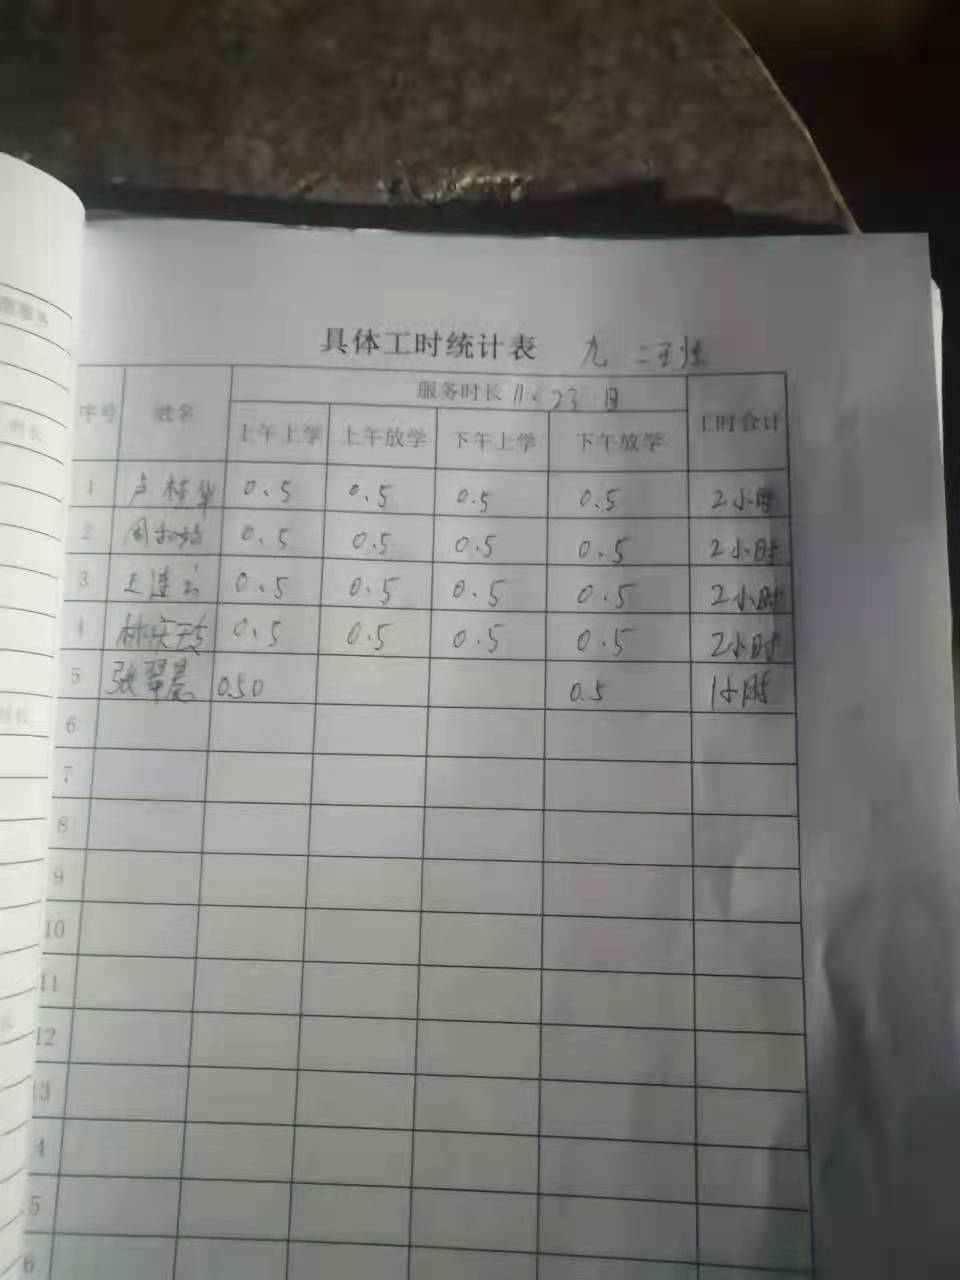 具体工时统计表 九 二
序号 姓名 服务时长 11.23日 工时合计
上午上学 上午放学 下午上学 下午放学
1 卢桂华 0.5 0.5 0.5 0.5 2小时
2 0.5 0.5 0.5 0.5 2小时
3 王连云 0.5 0.5 0.5 0.5 2小时
4 0.5 0.5 0.5 0.5 2小时
5 张翠晨 0.50 0.5 1小时
6
7
8
9
10
11
12
13
4
5
6